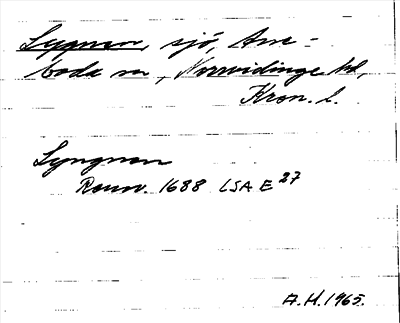 Lygnen, sjö, Älme-
boda sn, Norrvidinge hd,
Kron. l.
Lyngnen
Rannv. 1688 LSA E 27
A.H. 1965.